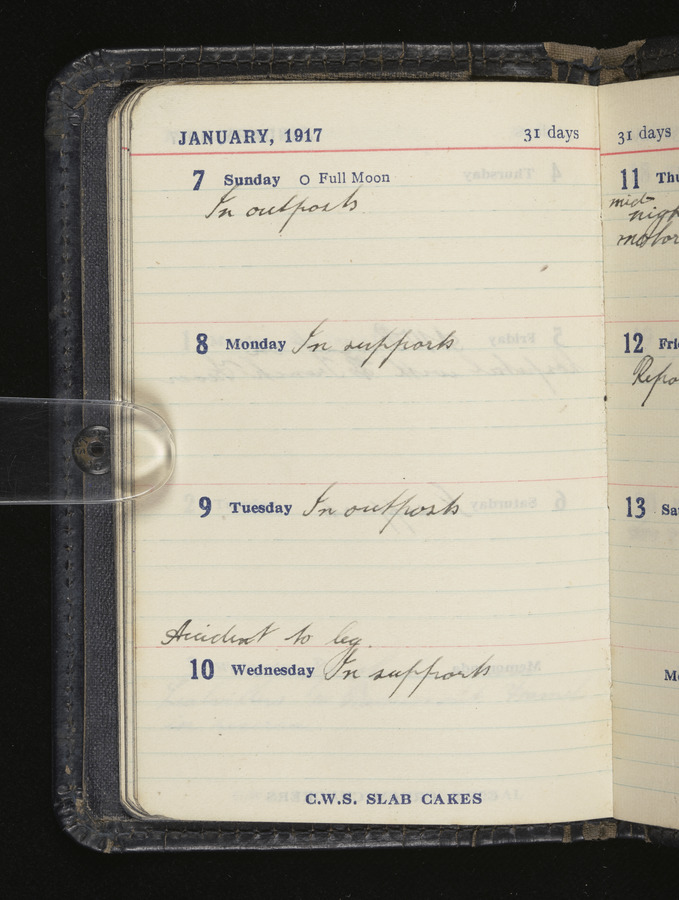 JANUARY, 1917 31 days
7 Sunday O Full Moon
In outposts
8 Monday In supports
9 Tuesday In outposts
Accident to leg.
10 Wednesday In supports
C.W.S. SLAB CAKES
31 days
11 Thu
mid-
nigh
motor
12 Fri
Repo
13 Sa
M